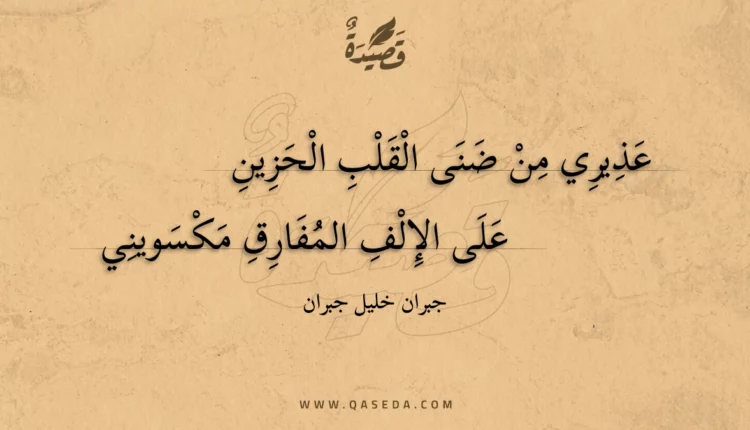 قَصِيدَةٌ
عَذِيرِي مِنْ ضَنَى الْقَلْبِ الْحَزِينِ
عَلَى الإِلْفِ المُفَارِقِ مَكْسَوِينِي
جبران خليل جبران
WWW.QASEDA.COM